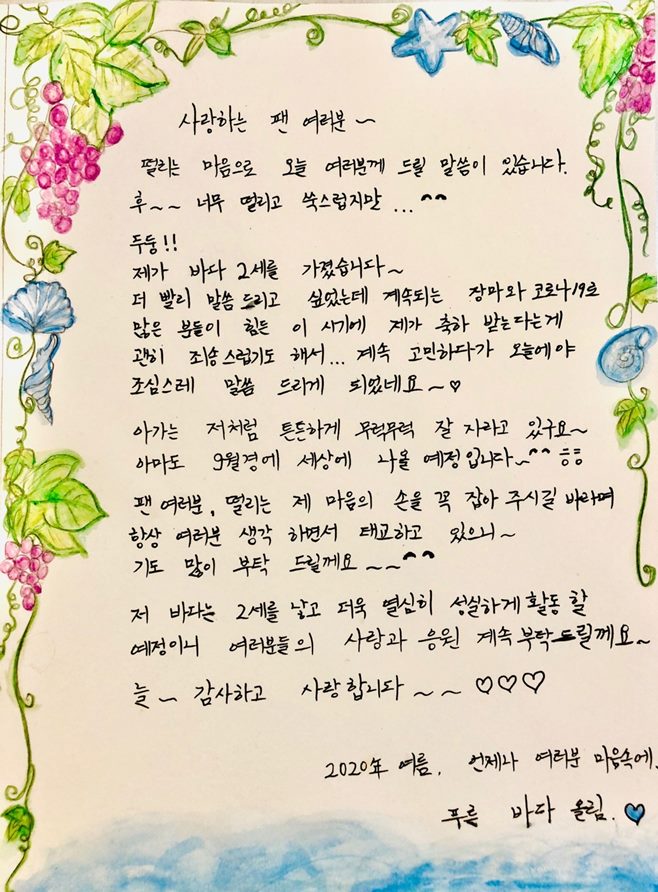 사랑하는 팬 여러분~
떨리는 마음으로 오늘 여러분께 드릴 말씀이 있습니다.
후~~ 너무 떨리고 쑥스럽지만 ... ^^
두둥!!
제가 바다 2세를 가졌습니다~
더 빨리 말씀 드리고 싶었는데 계속되는 장마와 코로나19로
많은 분들이 힘든 이 시기에 제가 축하 받는다는게
괜히 죄송스럽기도 해서... 계속 고민하다가 오늘에야
조심스레 말씀 드리게 되었네요~♡
아가는 저처럼 튼튼하게 무럭무럭 잘 자라고 있구요~
아마도 9월경에 세상에 나올 예정입니다~^^ ㅎㅎ
팬 여러분, 떨리는 제 마음의 손을 꼭 잡아 주시길 바라며
항상 여러분 생각 하면서 태교하고 있으니~
기도 많이 부탁 드릴께요~~^^
저 바다는 2세를 낳고 더욱 열심히 성실하게 활동 할
예정이니 여러분들의 사랑과 응원 계속 부탁드릴께요~
늘~ 감사하고 사랑합니다~~ ♡♡♡
2020年 여름. 언제나 여러분 마음속에.
푸른 바다 올림. ♥